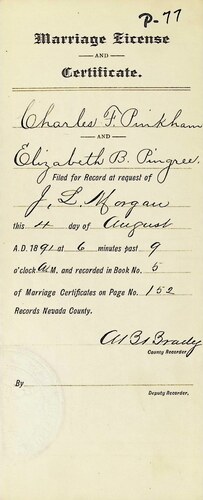 P-77
Marriage License
AND
Certificate.
Charles F. Pinkham
AND
Elizabeth B. Pingree
Filed for Record at request of
J. L. Morgan
this 4 day of August
A.D. 1891 at 6 minutes past 9
o'clock A.M. and recorded in Book No. 5
of Marriage Certificates on Page No. 152
Records Nevada County.
Brady
County Recorder
By
Deputy Recorder.